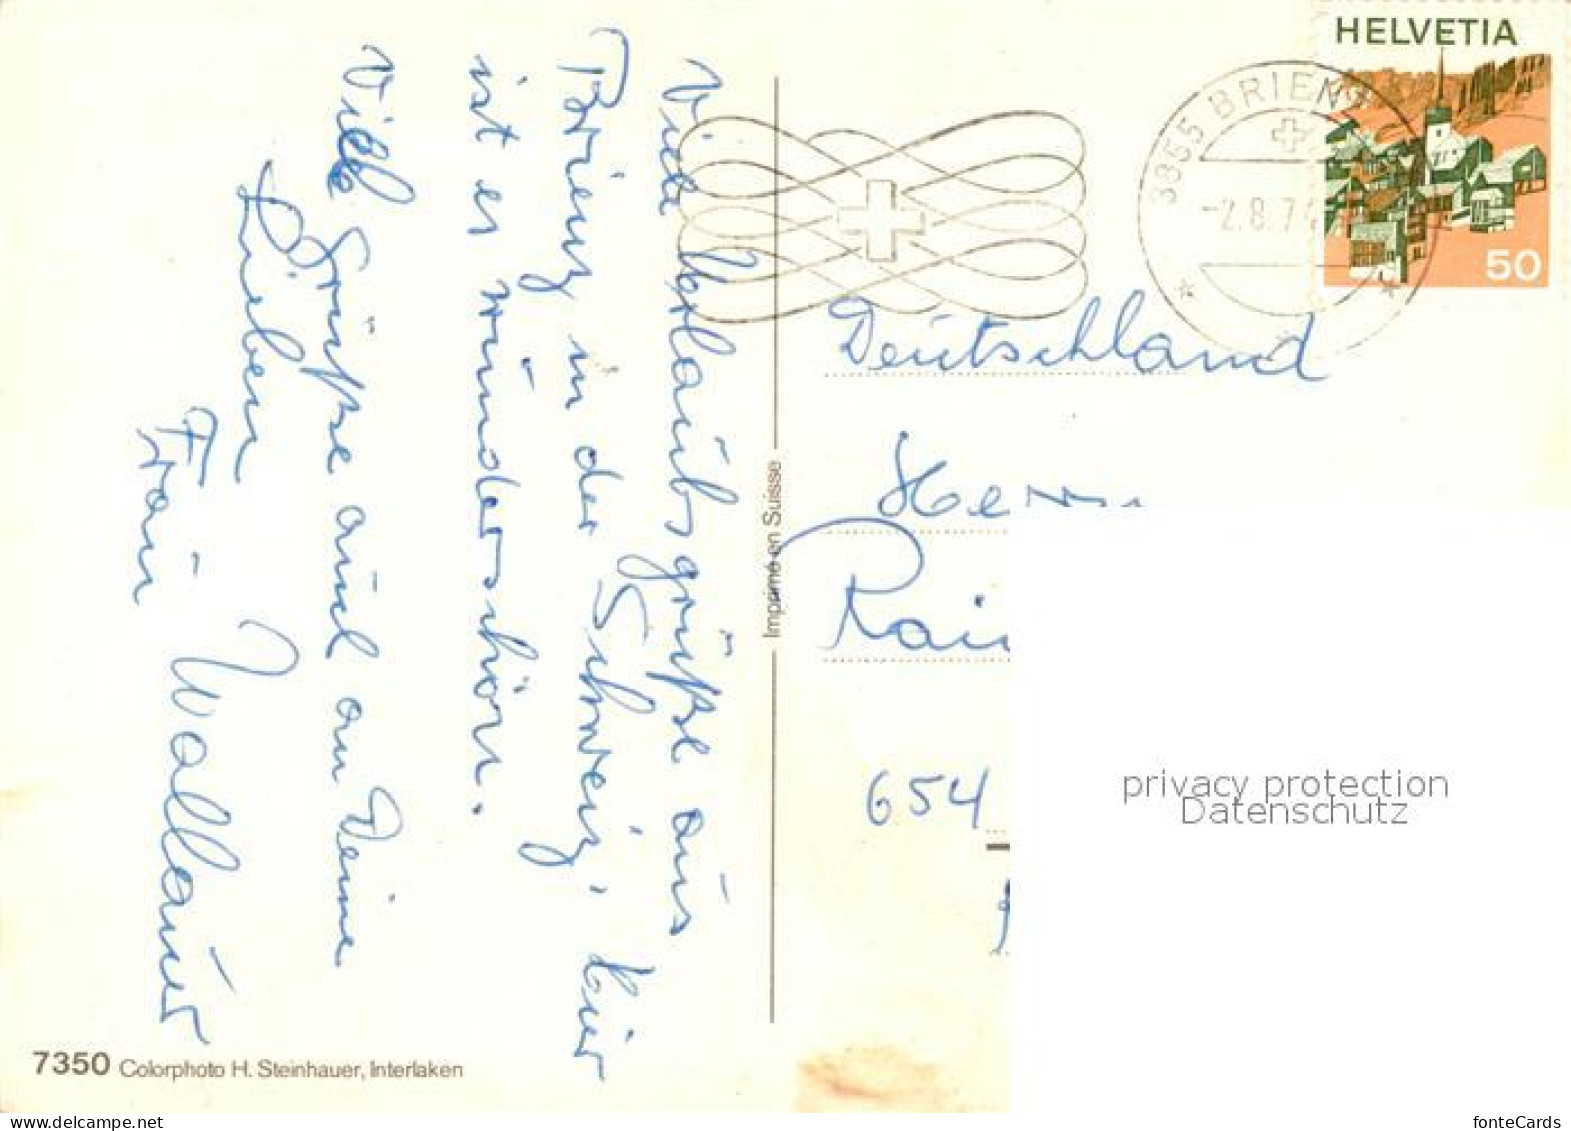 Viele Urlaubsgrüße aus
Brienz in der Schweiz, hier
ist es wunderschön.
Viele Grüße auch an Deine
Lieben
Frau Wallauer
Imprimé en Suisse
7350 Colorphoto H. Steinhauer, Interlaken
HELVETIA
50
3855 BRIENZ
-2.8.74
Deutschland
Herrn
Rai
654
privacy protection
Datenschutz
fonteCards